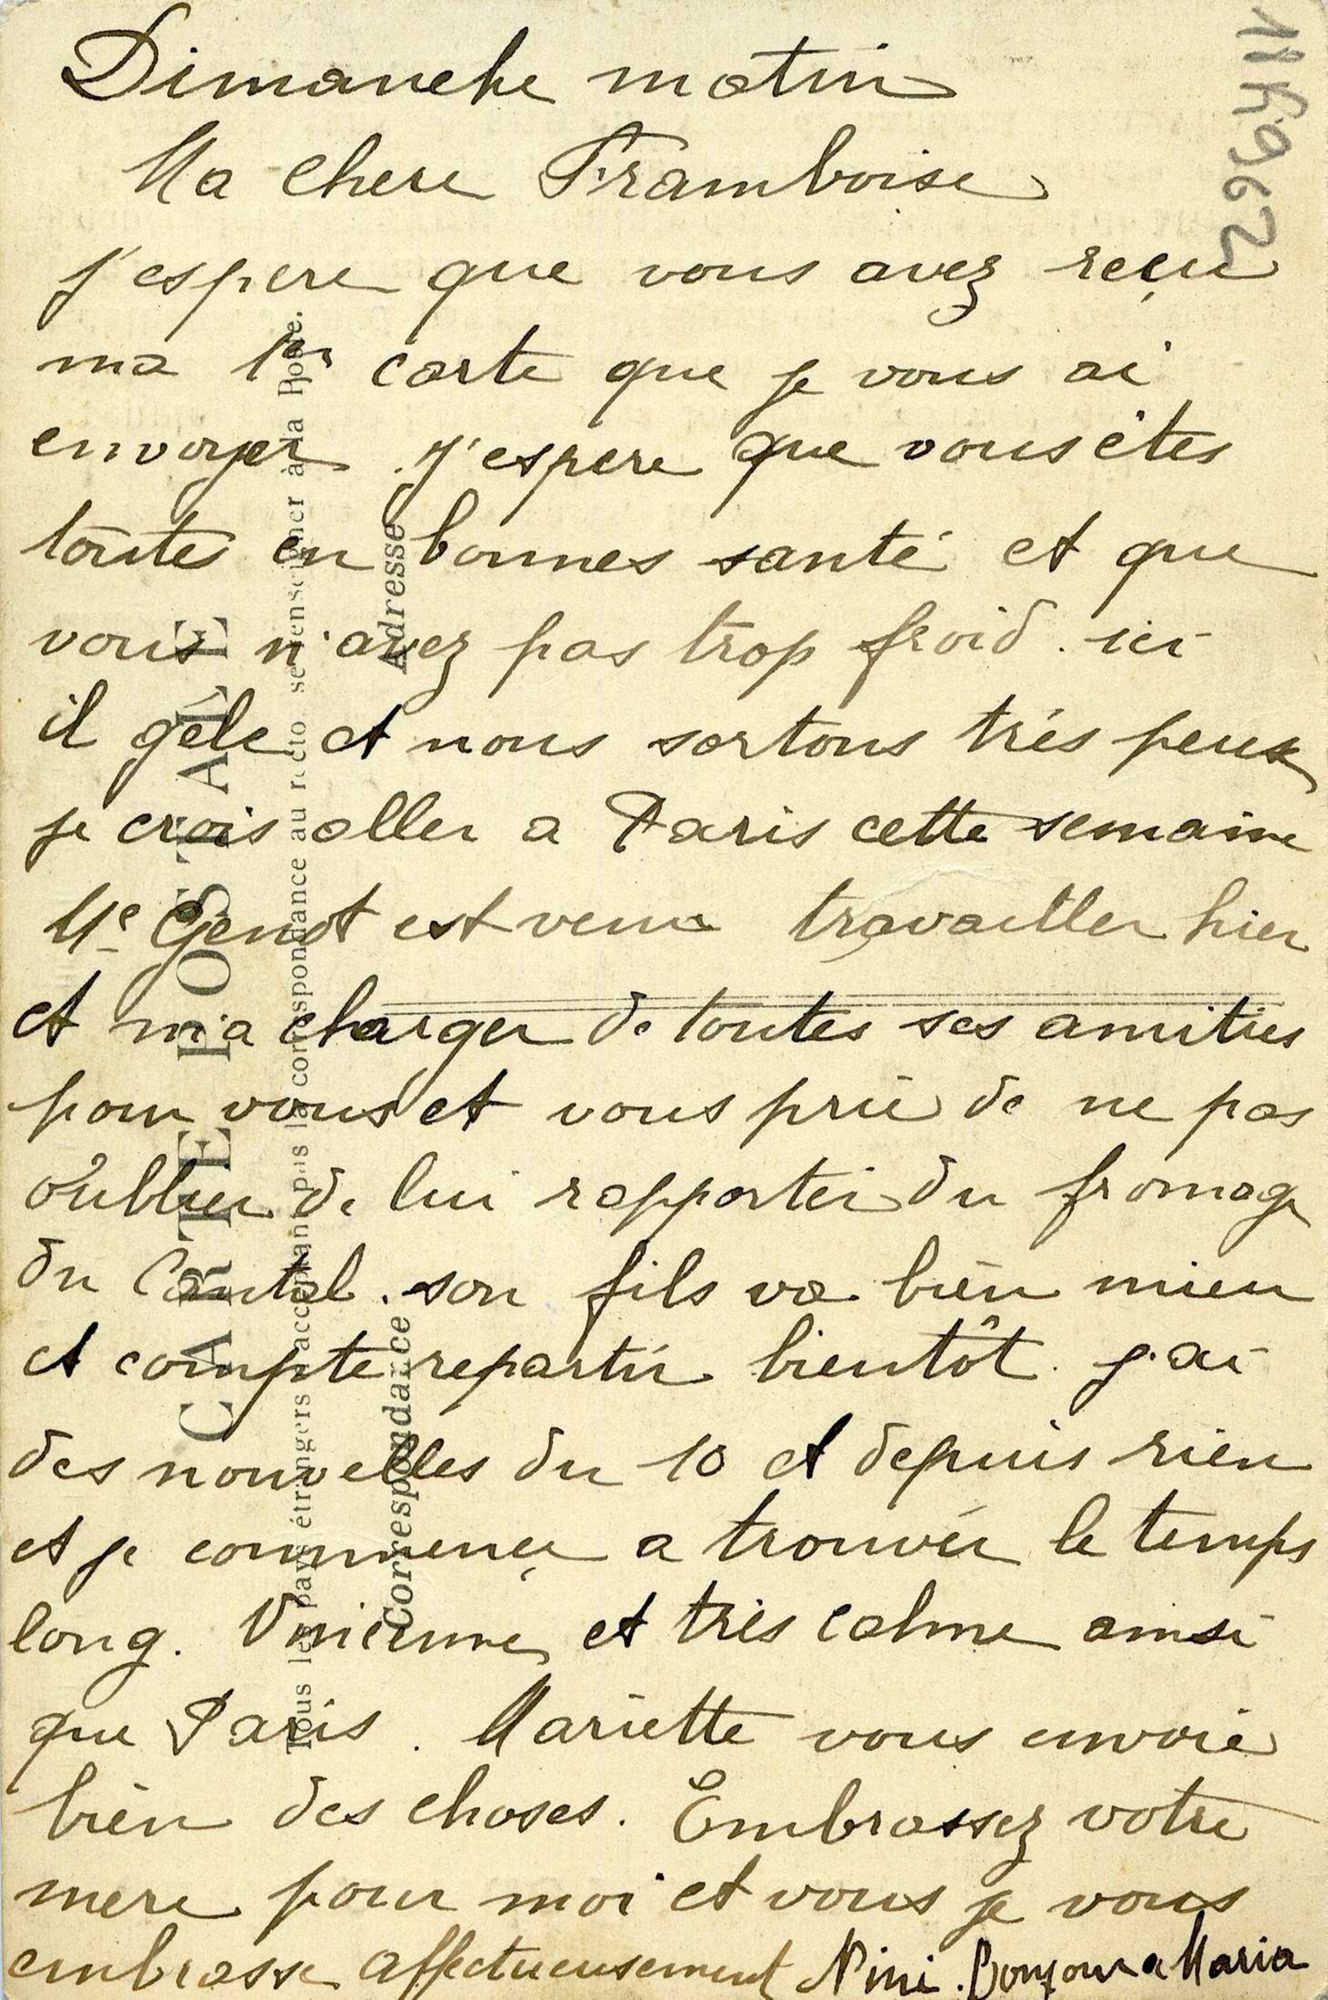 Dimanche matin
Ma chere Framboise
j'espere que vous avez reçu
ma 1er carte que je vous ai
envoyer. J'espere que vous êtes
toutes en bonnes santé et que
vous n'avez pas trop froid. ici
il géle et nous sortons trés peux
je crois aller a Paris cette semaine
Me Genot est venue travailler hier
et m'a charger de toutes ses amities
pour vous et vous prie de ne pas
oublier de lui rapporter du fromage
du Cantal. son fils va bien mieu
et compte repartir bientôt. j'ai
des nouvelles du 10 et depuis rien
et je commençe a trouver le temps
long. Vincenne et trés calme ainsi
que Paris. Mariette vous envoie
bien des choses. Embrassez votre
mere pour moi et vous je vous
embrasse affectueusement Nini. Bonjour a Maria
CARTE POSTALE
Tous les pays étrangers n'acceptant pas la correspondance au recto, se renseigner à la Poste.
Correspondance
Adresse